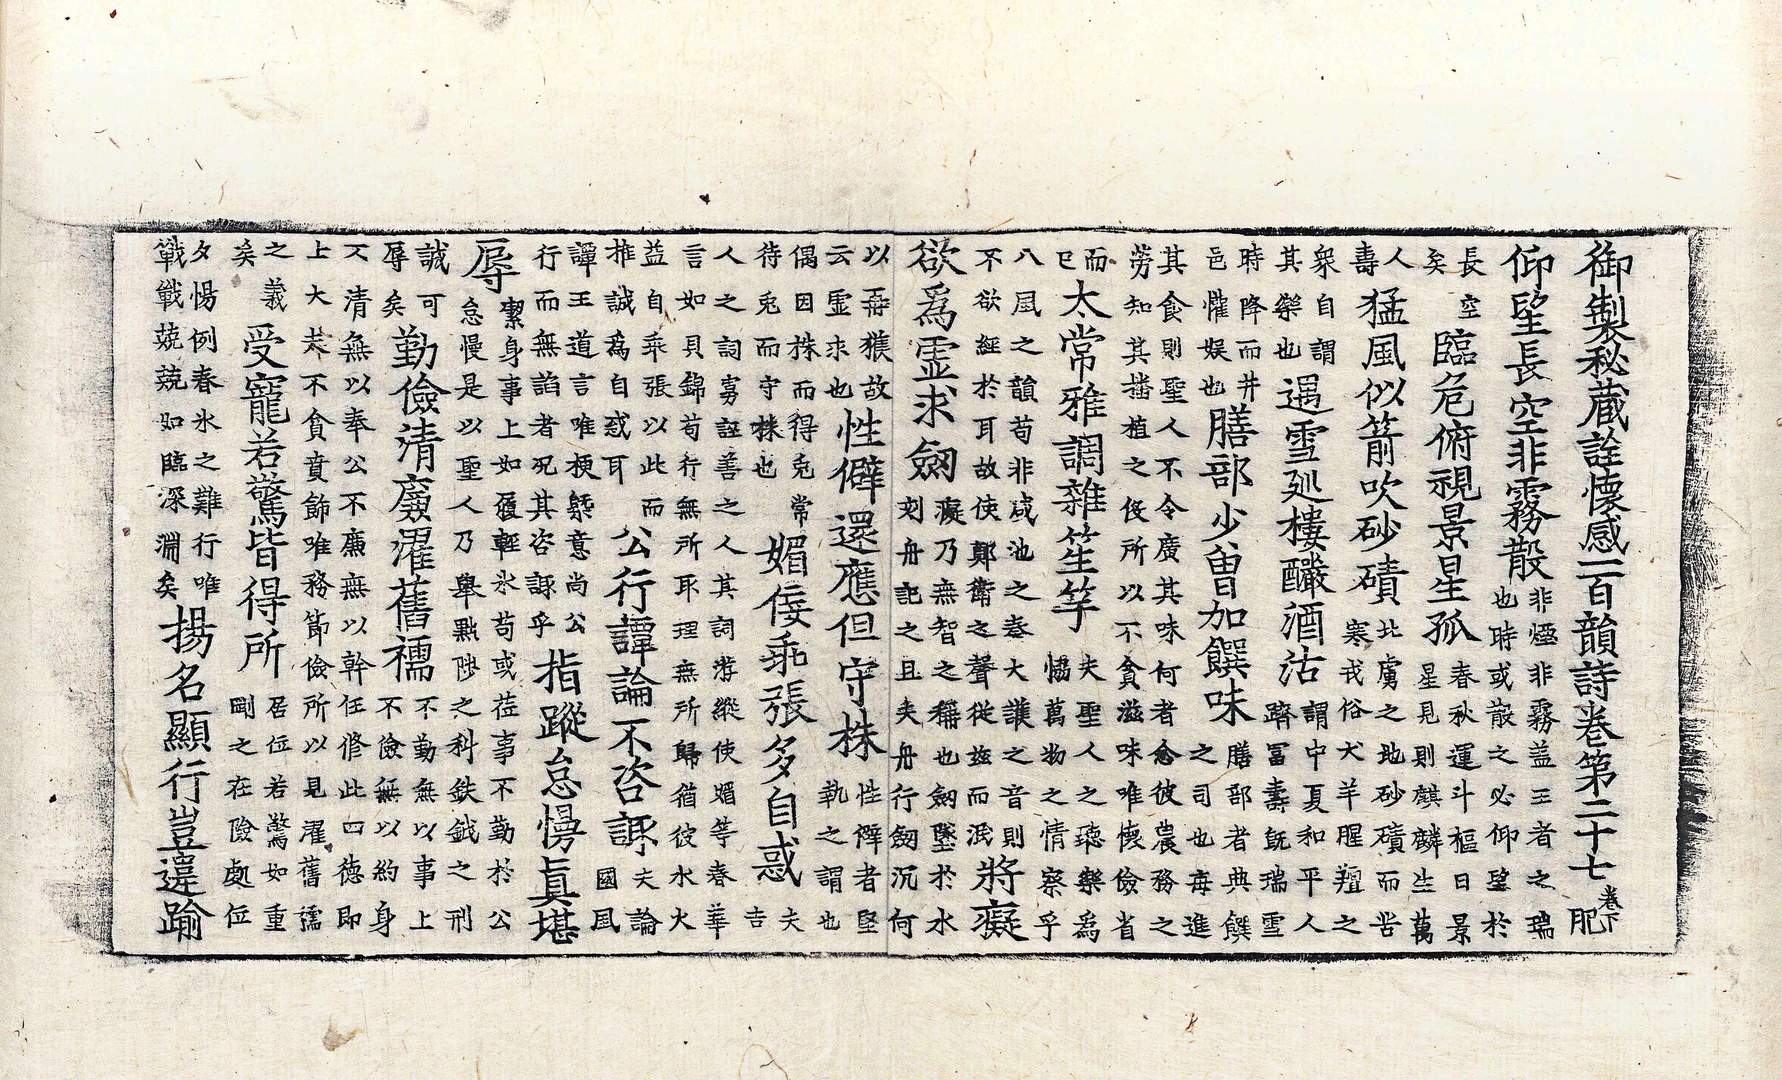 御製秘蔵詮懷感一百韻詩卷第二十七 卷下 肥
仰望長空非霧散 非煙非霧盖王者之瑞也時或散之必仰望於
長空矣 臨危俯視景星孤 春秋運斗樞日景星見則麒麟生萬
人壽 猛風似箭吹砂磧 北虜之地砂磧而苦寒戎俗犬羊腥羶之
衆自謂其樂也 遇雪廵樓釅酒沽 謂中夏和平人躋冨壽旣瑞雪
時降而井邑懽娛也 膳部少曾加饌味 膳部者典饌之司也每進
其食則聖人不令廣其味何者念彼農務之勞知其播植之伇所以不貪滋味唯懷儉省
而已 太常雅調雜笙竽 夫聖人之聴樂為恊萬物之情察乎
八風之韻苟非咸池之奏大護之音則不欲經於耳故使鄭衛之聲從兹而泯 將癡
欲爲霊求劒 癡乃無智之稱也劒墜於水刻舟記之且夫舟行劒沉何
以再獲故云霊求也 性僻還應但守株 性僻者堅執之謂也
偶因株而得兎常待兎而守株也 媚佞乖張多自惑 夫吉
人之詞寡誣善之人其詞游縱使媚等春華言如貝錦苟行無所取理無所歸猶彼水火
益自乖張以此而推誠為自惑耳 公行譚論不咨諏 夫論國風
譚王道言唯梗槩意尚公行而無諂者况其咨諏乎 指蹤怠慢眞堪
辱 潔身事上如履輕氷苟或莅事不勤於公怠慢是以聖人乃舉黜陟之科鈇鉞之刑
誠可辱矣 勤儉清廉濯舊襦 不勤無以事上不儉無以約身
不清無以奉公不廉無以幹任修此四德即上大夫不貪賁飾唯務節儉所以見濯舊襦
之義矣 受寵若驚皆得所 居位若驚如重剛之在險處位
夕惕例春氷之難行唯戰戰兢兢如臨深淵矣 揚名顯行豈違踰